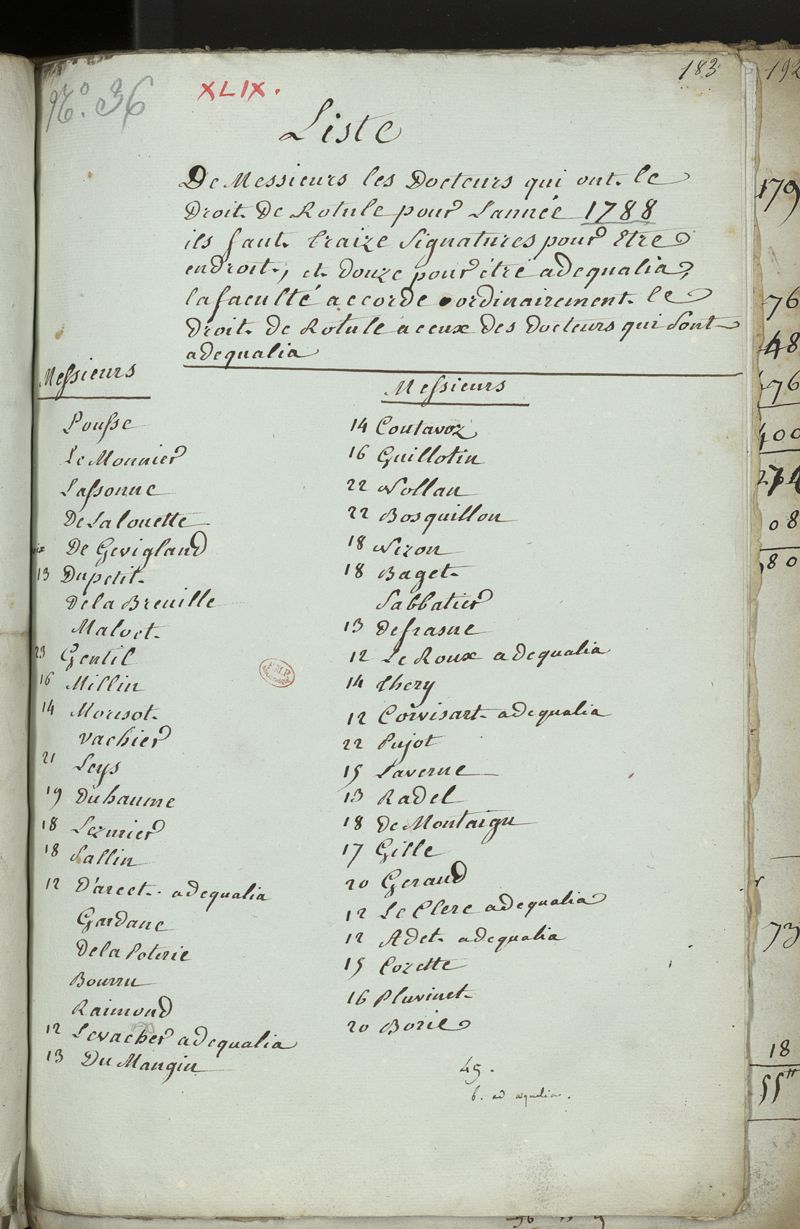 183
192
N.º 36
XLIX.
Liste
De Messieurs les Docteurs qui ont le
Droit De Rotule pour L'année 1788
ils faut traize Signatures pour Etre
endroit, et douze pour être adequalia,
la faculté accorde ordinairement le
Droit De Rotule a ceux des Docteurs qui Sont
adequalia
Messieurs
Pousse
Le Monnier
Lassonne
De Lalouette
De Gevigland
13 Dupetit
De la Breuille
Maloet
23 Gentil
16 Millin
14 Morisot
Vachier
21 Leys
19 Duhaume
18 Lezurier
18 Sallin
12 D'arcet. adequalia
Gardane
De la Poterie
Bourru
Raimond
12 Levacher adequalia
13 Du Mangin
Messieurs
14 Coutavoz
16 Guillotin
22 Nollan
22 Bosquillon
18 Nizon
18 Baget
Sabbatier
13 Defrasne
12 Le Roux adequalia
14 thery
12 Corvisart adequalia
22 Pujot
15 Laverne
13 Radel
18 De Montaigu
17 Gille
20 Geraud
12 Le Clerc adequalia
12 Adet adequalia
15 Cozette
16 Pluvinet
20 Borie
45.
6. ad aqualia.
179
76
48
76
400
08
80
73
18
55